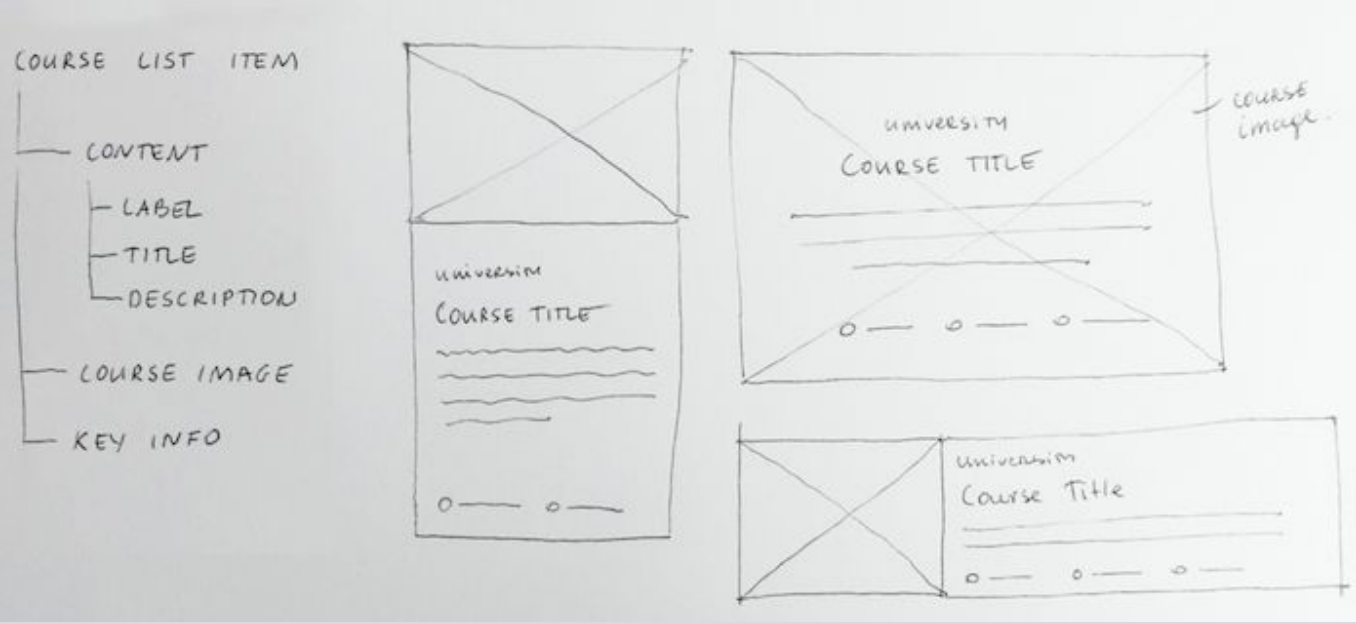 COURSE LIST ITEM
CONTENT
LABEL
TITLE
DESCRIPTION
COURSE IMAGE
KEY INFO
university
COURSE TITLE
university
COURSE TITLE
course
image.
university
Course Title